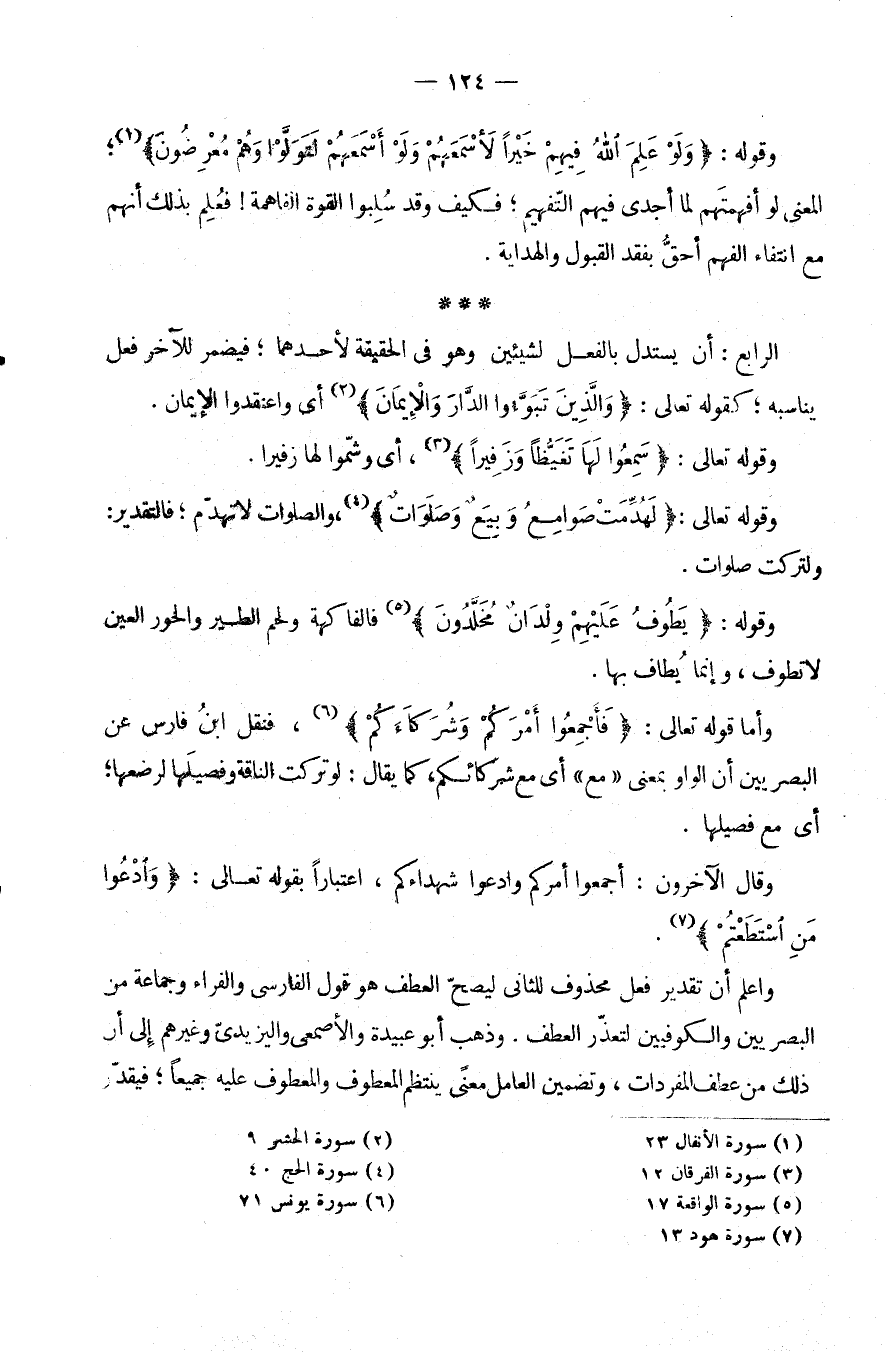 — ١٢٤ —
وقوله : ﴿ وَلَوْ عَلِمَ ٱللّٰهُ فِيهِمْ خَيْراً لَأَسْمَعَهُمْ وَلَوْ أَسْمَعَهُمْ لَتَوَلَّوْا وَهُمْ مُعْرِضُونَ﴾(١)؛
المعنى لو أفهمتَهم لما أجدى فيهم التّفهيم ؛ فكيف وقد سُلِبوا القوة الفاهمة ! فعُلِم بذلك أنهم
مع انتفاء الفهم أحقُّ بفقد القبول والهداية .
***
الرابع : أن يستدل بالفعل لشيئين وهو فى الحقيقة لأحدهما ؛ فيضمر للآخر فعل
يناسبه ؛ كقوله تعالى : ﴿ وَالَّذِينَ تَبَوَّءُوا الدَّارَ وَالْإِيمَانَ ﴾(٢) أى واعتقدوا الإيمان .
وقوله تعالى : ﴿ سَمِعُوا لَهَا تَغَيُّظاً وَزَفِيراً ﴾(٣) ، أى وشمّوا لها زفيرا .
وقوله تعالى : ﴿ لَهُدِّمَتْ صَوامِعُ وَبِيَعٌ وَصَلَوَاتٌ ﴾(٤)، والصلوات لاتهدّم ؛ فالتقدير:
ولتركت صلوات .
وقوله : ﴿ يَطُوفُ عَلَيْهِمْ وِلْدَانٌ مُخَلَّدُونَ ﴾(٥) فالفاكهة ولحم الطير والحور العين
لاتطوف ، وإنما يُطاف بها .
وأما قوله تعالى : ﴿ فَأَجْمِعُوا أَمْرَكُمْ وَشُرَكَاءَكُمْ ﴾(٦) ، فنقل ابنُ فارس عن
البصريين أن الواو بمعنى «مع» أى مع شركائكم، كما يقال : لو تركت الناقة وفصيلَها لرضعها؛
أى مع فصيلها .
وقال الآخرون : أجمعوا أمركم وادعوا شهداءكم ، اعتباراً بقوله تعالى : ﴿ وَٱدْعُوا
مَنِ ٱسْتَطَعْتُمْ ﴾(٧) .
واعلم أن تقدير فعل محذوف للثانى ليصحّ العطف هو قول الفارسى والفراء وجماعة من
البصريين والكوفيين لتعذّر العطف . وذهب أبو عبيدة والأصمعى واليزيدىّ وغيرهم إلى أن
ذلك من عطف المفردات ، وتضمين العامل معنًى ينتظم المعطوف والمعطوف عليه جميعاً ؛ فيقدّر
(١) سورة الأنفال ٢٣ (٢) سورة الحشر ٩
(٣) سورة الفرقان ١٢ (٤) سورة الحج ٤٠
(٥) سورة الواقعة ١٧ (٦) سورة يونس ٧١
(٧) سورة هود ١٣